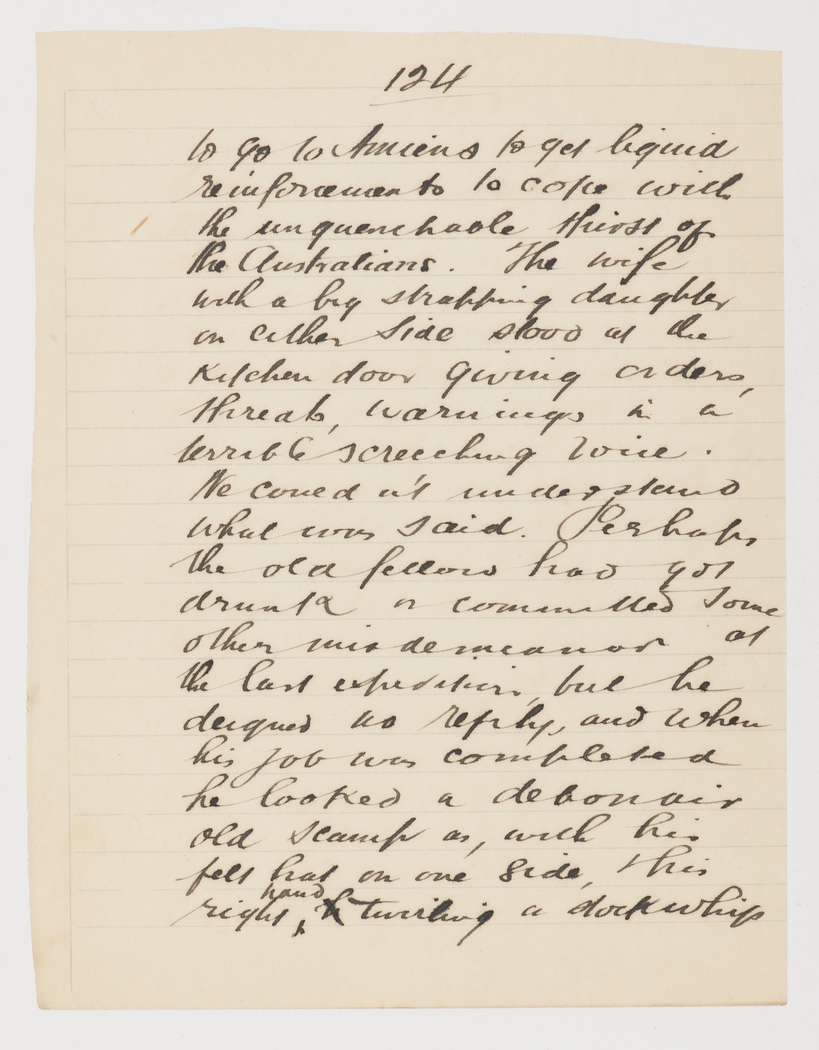 124
to go to Amiens to get liquid
reinforcements to cope with
the unquenchable thirst of
the Australians. The wife
with a big strapping daughter
on either side stood at the
kitchen door giving orders,
threats, warnings in a
terrible screeching voice.
We could n't understand
what was said. Perhaps
the old fellow had got
drunk or committed some
other misdemeanor at
the last expedition, but he
deigned no reply, and when
his job was completed
he looked a debonair
old scamp as, with his
felt hat on one side, & his
right hand, twirling a stockwhip